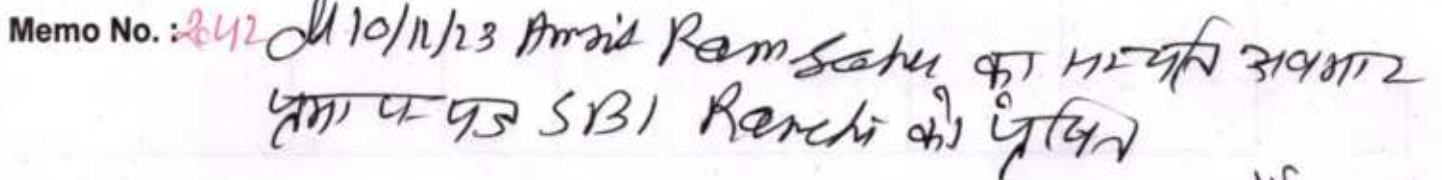 Memo No. : 2642 dt 10/11/23 Amrit Ram Sahu का सम्पत्ति अवभार
प्रमाण पत्र SBI Ranchi को प्रेषित